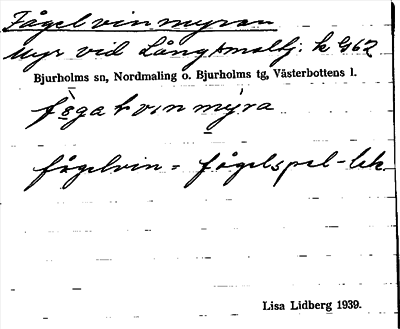 Fågelvinmyran
Myr vid Långsmalbj: k G62
Bjurholms sn, Nordmaling o. Bjurholms tg, Västerbottens l.
fågelvin = fågelspel-lek.
Lisa Lidberg 1939.